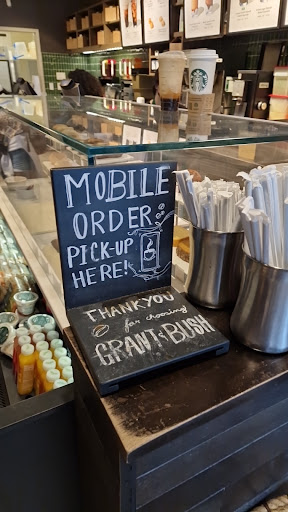 MOBILE
ORDER
PICK-UP
HERE!
THANK YOU
for choosing
GRANT & BUSH